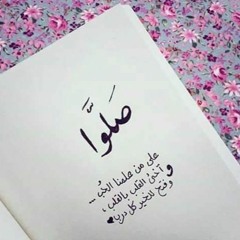 صَلّوا
على من علمنا الحُب _
آخى القلب بالقلب ،
و فتح للخير كل دربا